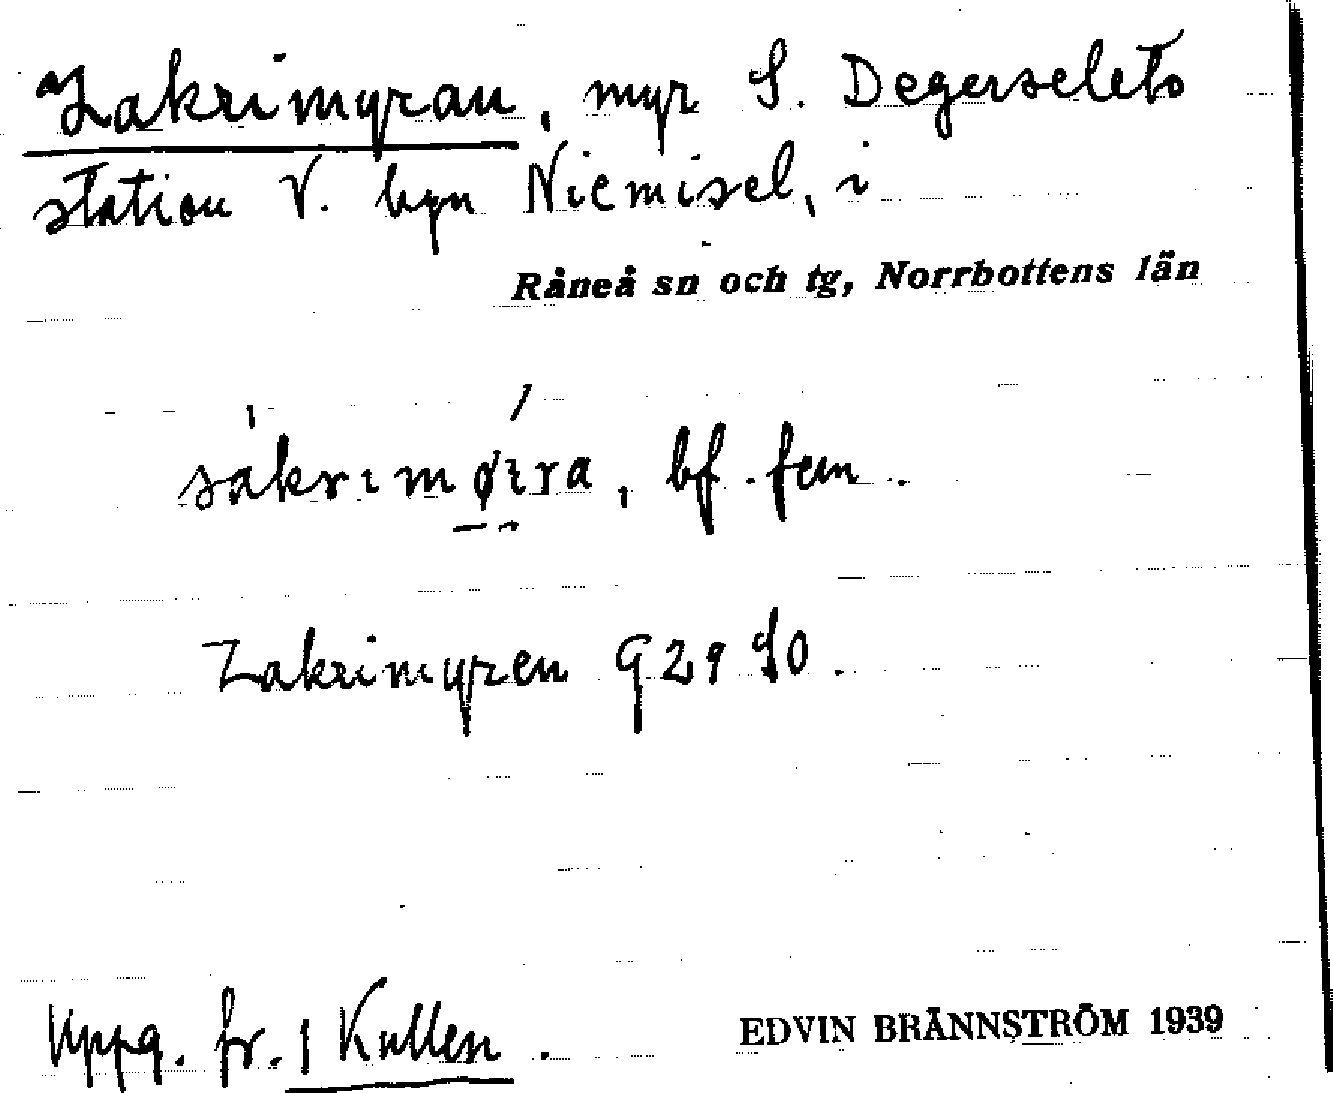 Zakrimyran, myr S. Degerselets
station V. byn Niemisel, i
Råneå sn och tg, Norrbottens län
sakrımøıra, bf. fem.
Zakrimyren G 29 SO.
Uppg. fr. 1 Kullen.
EDVIN BRÄNNSTRÖM 1939